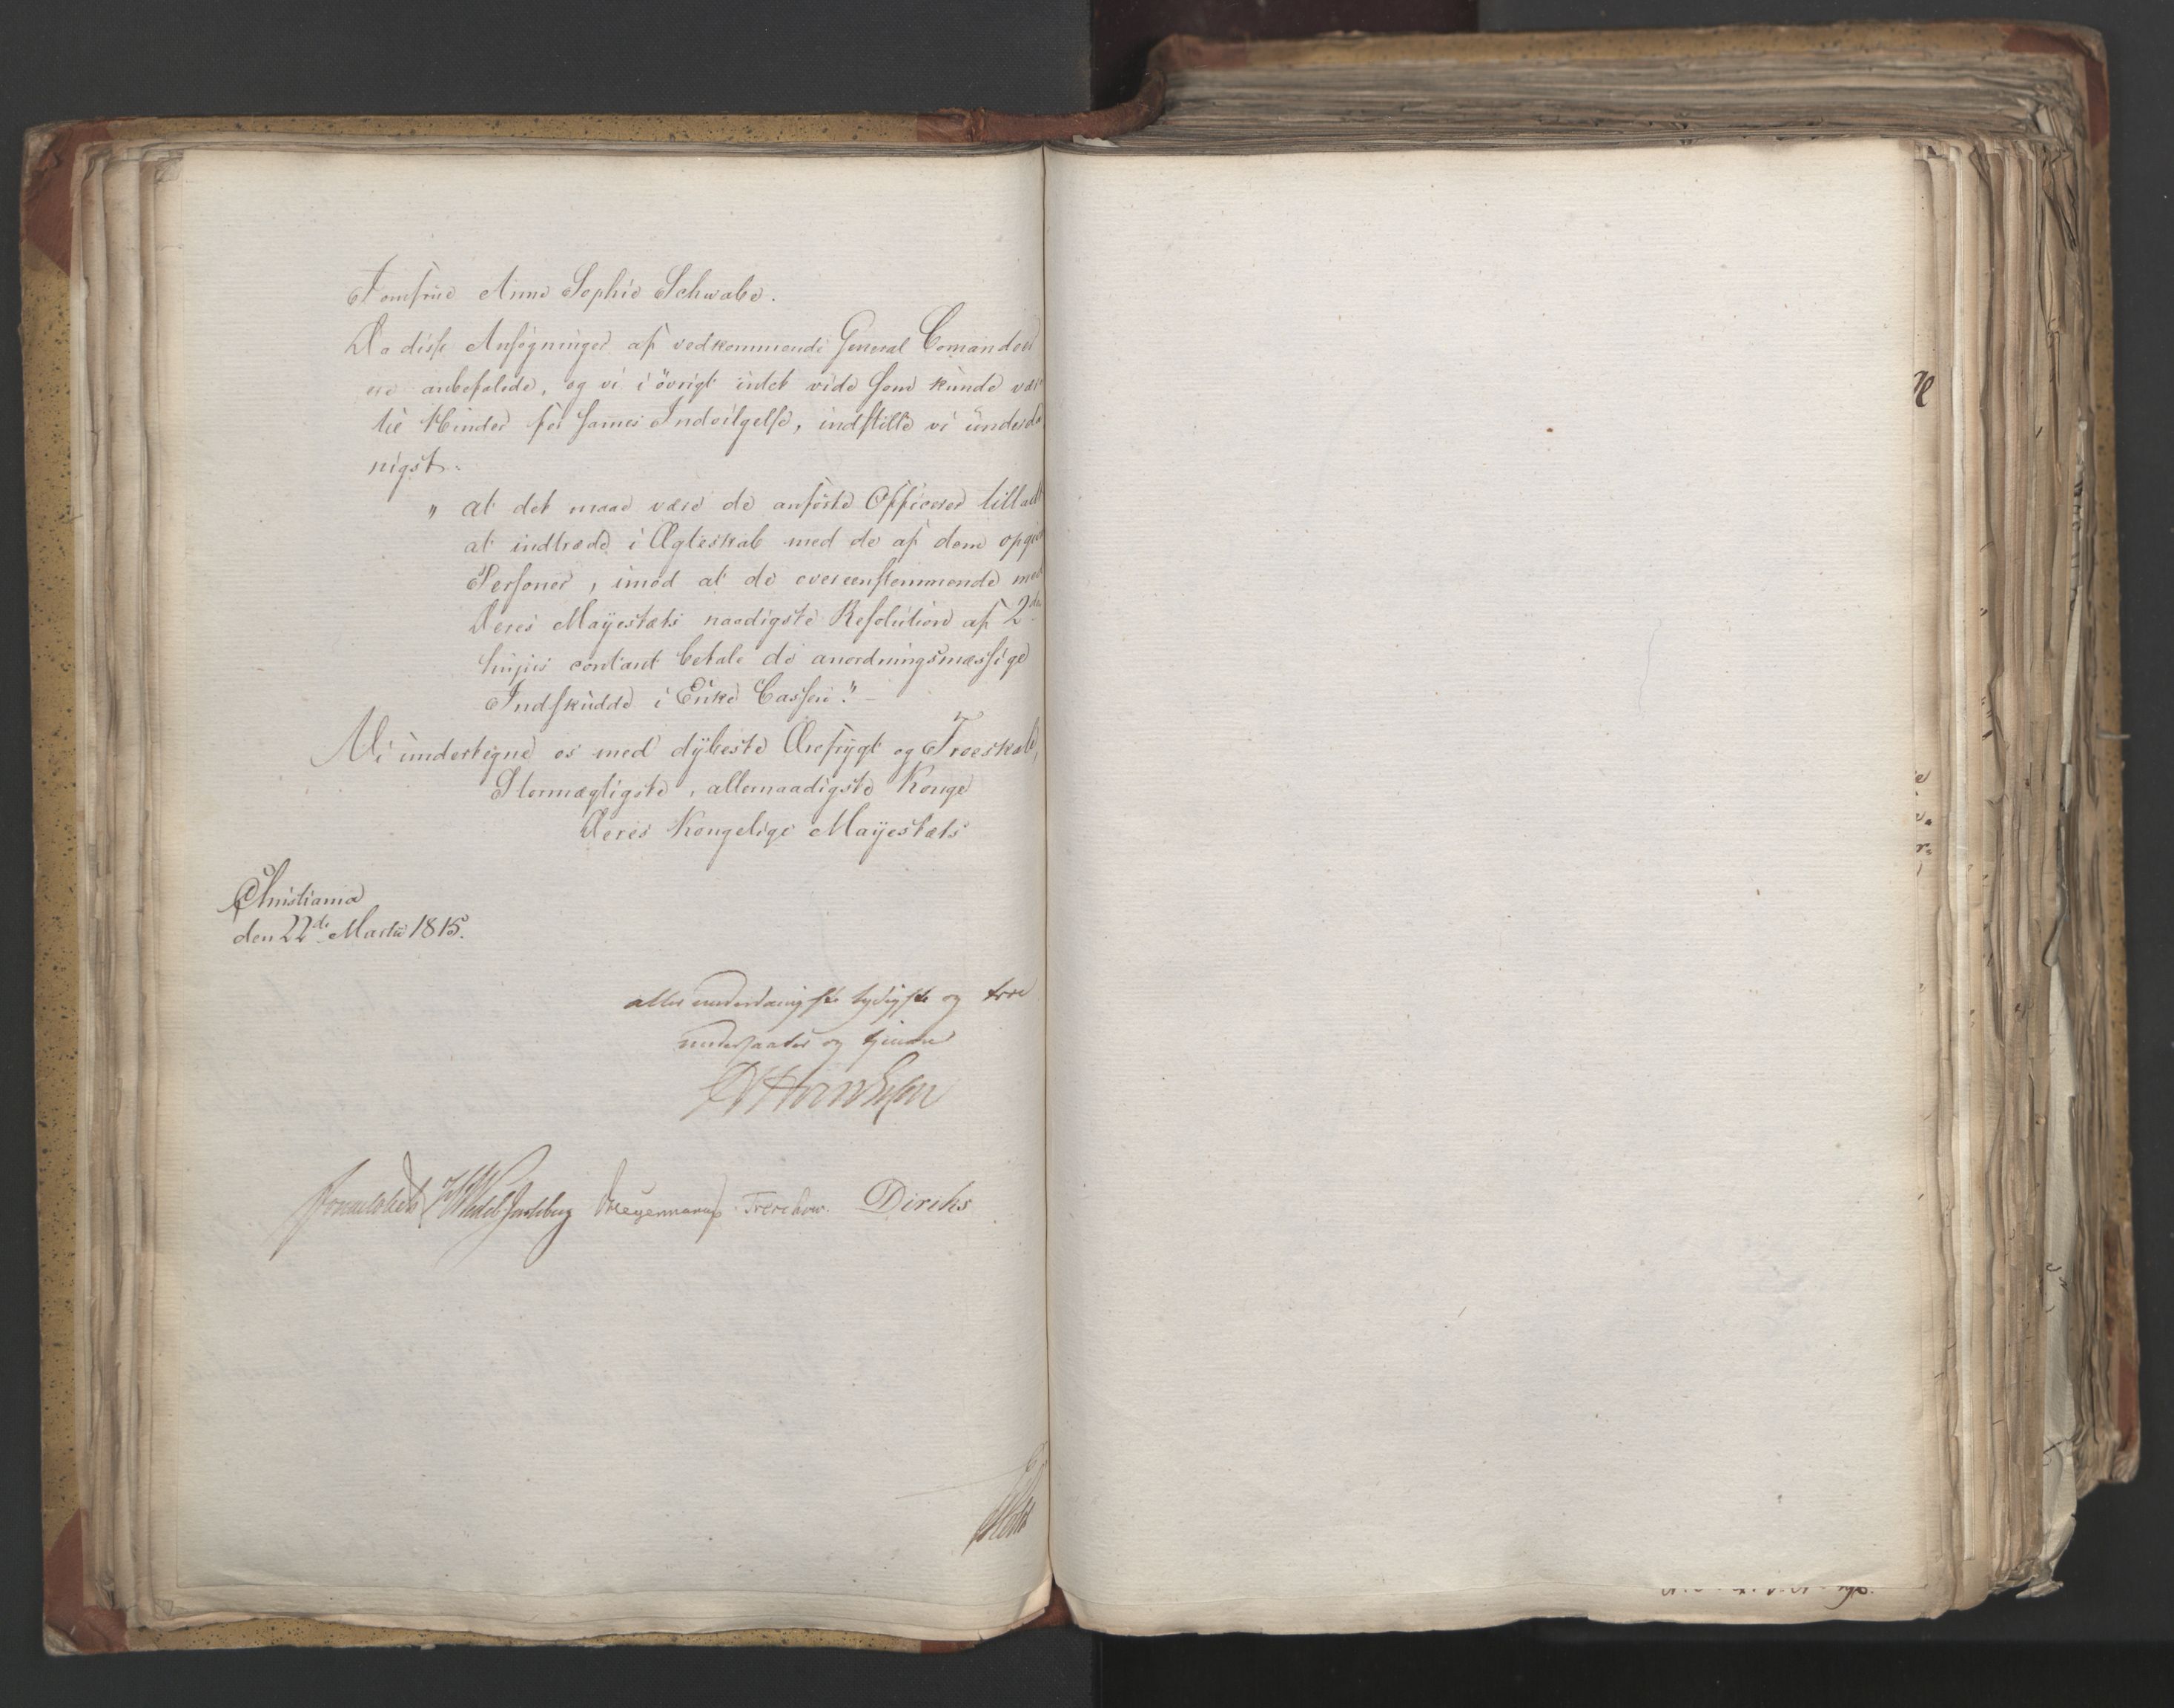 Jomfrue Anne Sophie Schwabe.
Da disse Ansøgninger af vedkommende General Comandoer
ere anbefalede, og vi i øvrigt intet vide som kunde være
til Hinder for sammes Indvilgelse, indstille vi underda
nigst:
" at det maae være de anførte Officerer tilladt
at indtræde i Ægteskab med de af dem opgivne
Personer, imod at de overeenstemmende med
Deres Mayestæts naadigste Resolution af 2den
hujus contant betale de anordningsmæssige
Indskudde i Enke Cassen." -
Vi undertegne os med dybeste Ærefrygt og Troeskab,
Stormægtigste, allernaadigste Konge
Deres Kongelige Mayestæts
Christiania
den 22de Martii 1815.
allerunderdanigste lydigste og troe
undersaatter og tjenere
Sommerhielm Wedel Jarlsberg Treschow. Diriks